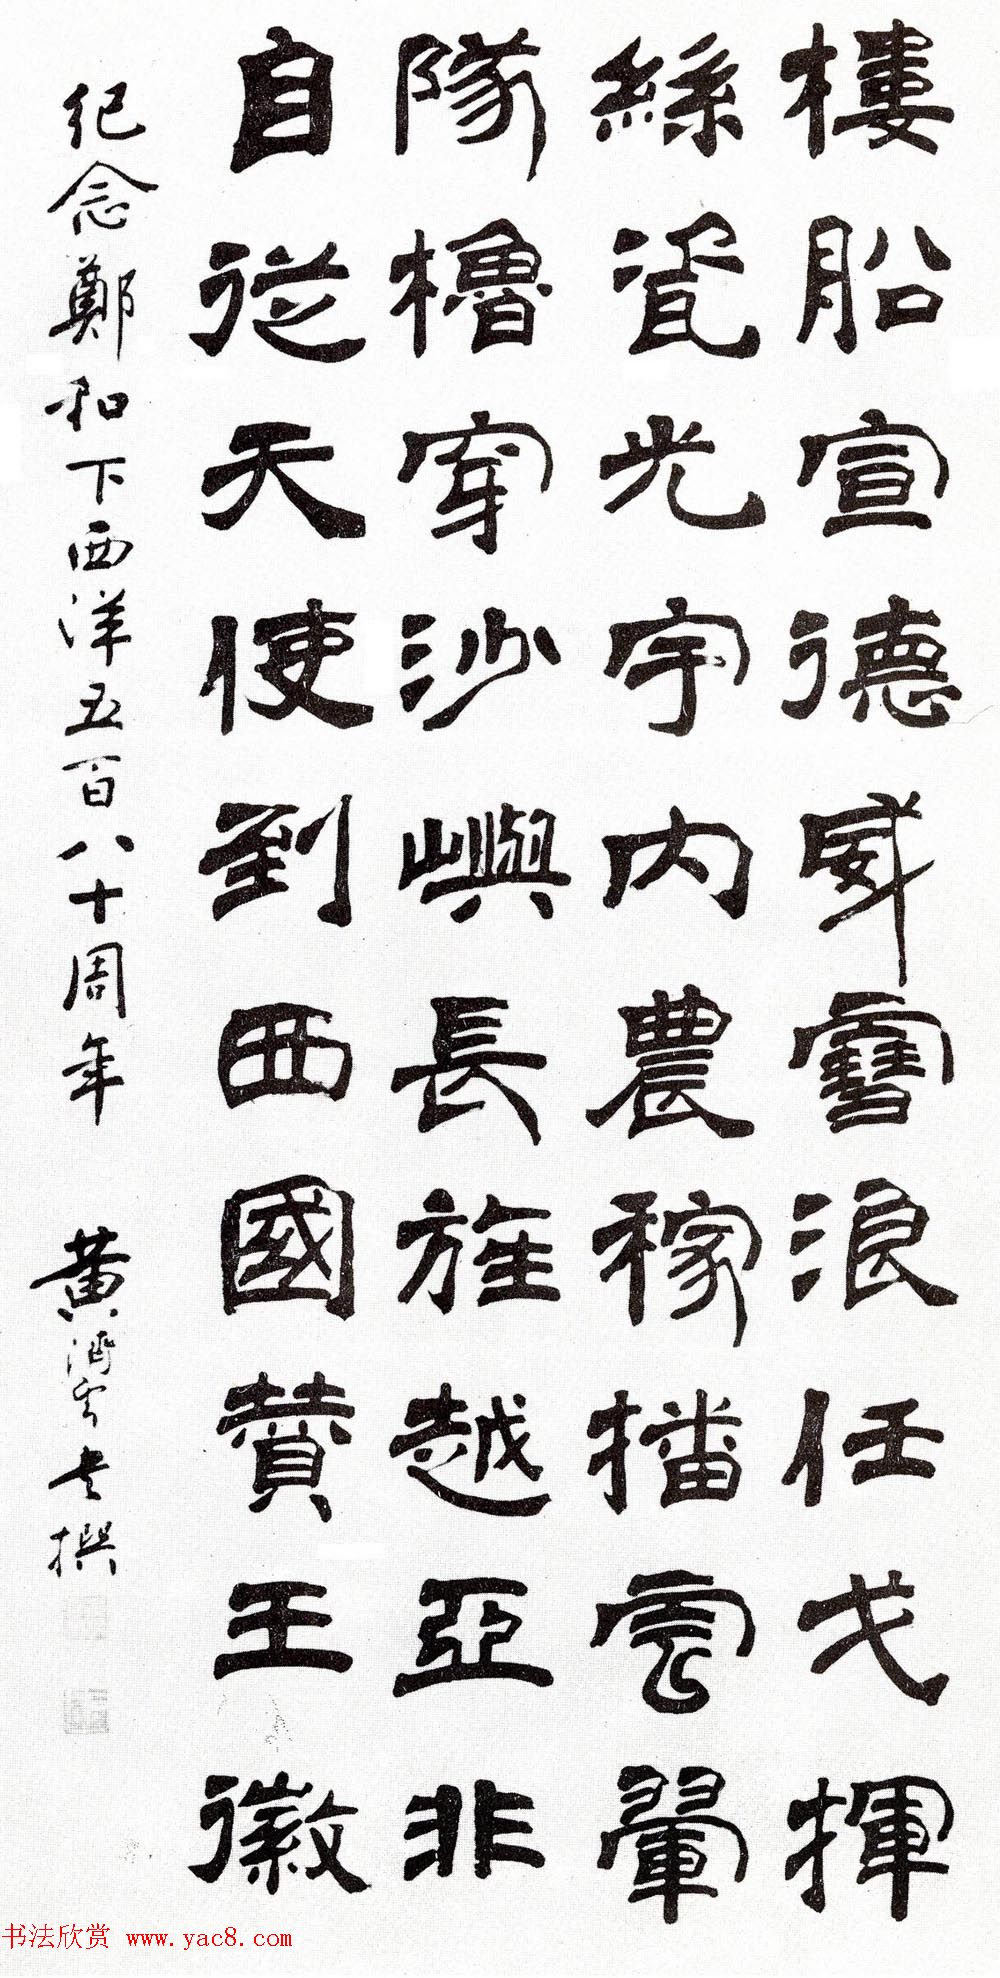 樓船宣德威雪浪任戈揮
絲瓷光宇内農稼播雲翬
隊櫓穿沙嶼長旌越亞非
自從天使到西國贊王徽
紀念鄭和下西洋五百八十周年
黄 撰
书法欣赏 www.yac8.com